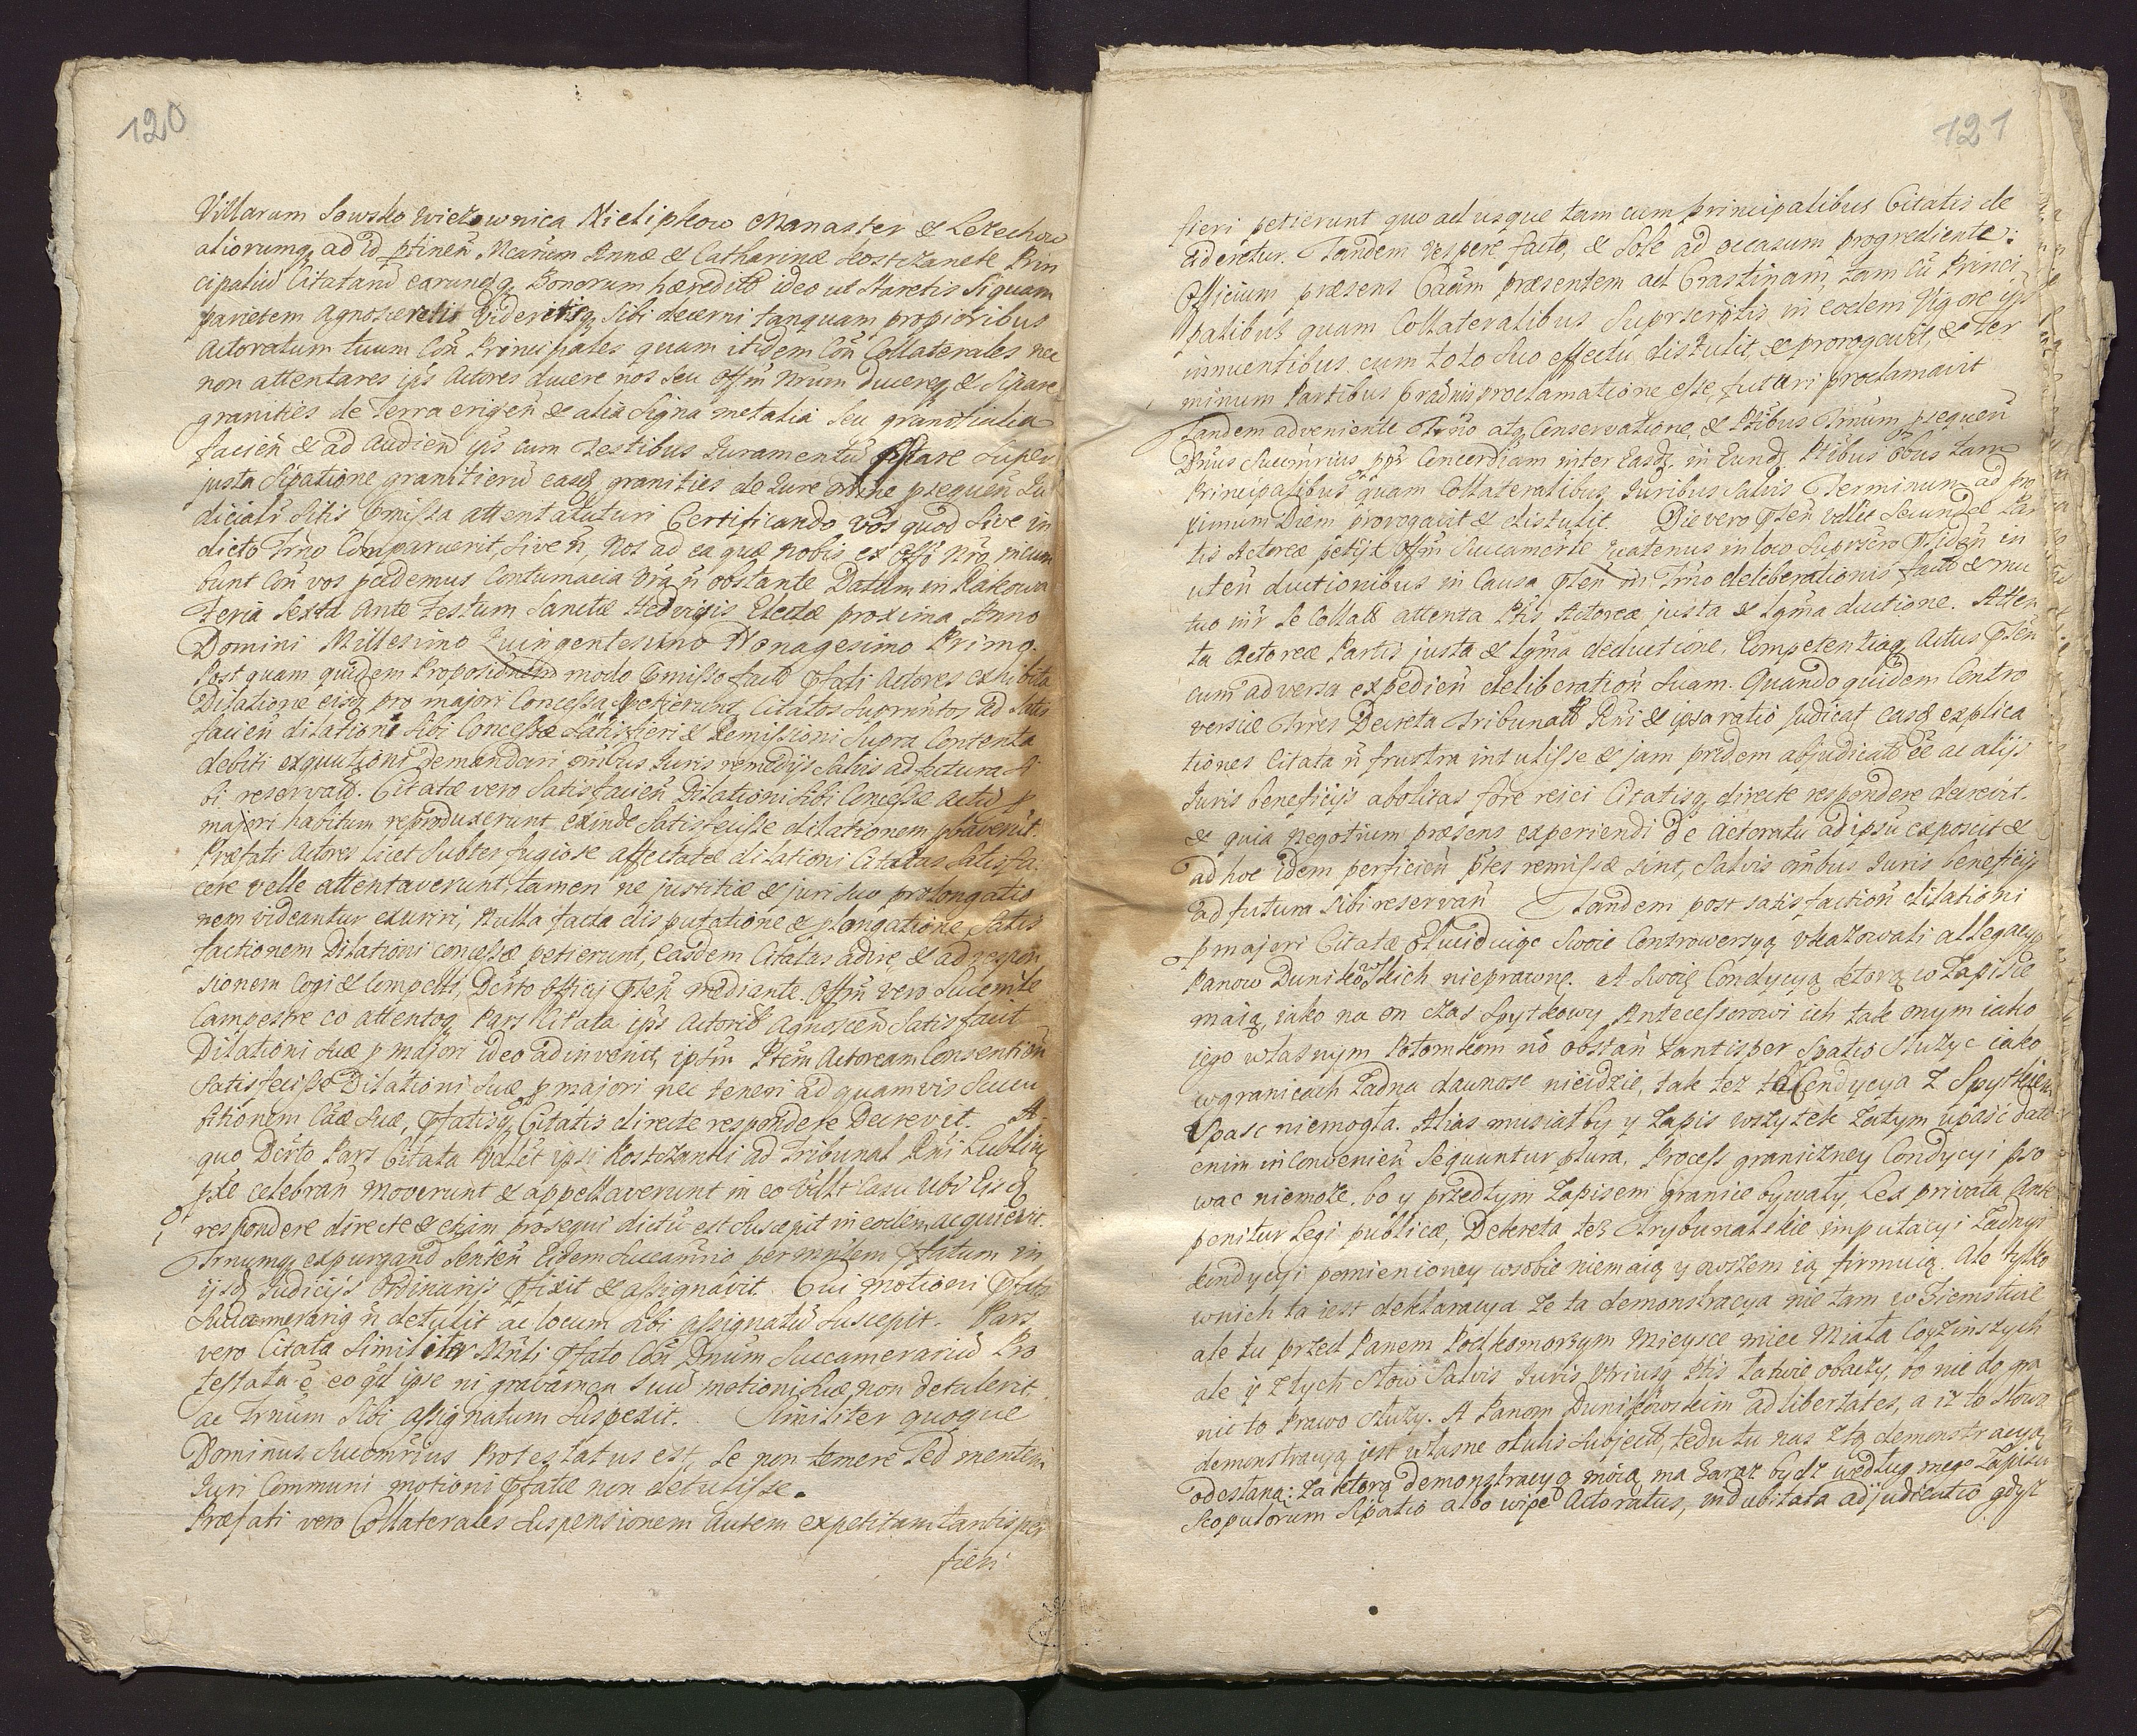 120
Villarum Sowsko Wietownica Nielipkow Manaster & Lezechow
aliorumq, ad id ptineñ Necarum Annæ & Catharinæ Kostczanek Prin
cipaliũ Citatarũ earundq, Bonorum hæreditũ ideo ut staretis siquam
parietem agnosceretis videritisq, sibi decerni tanquam propioribus
Actoratum tuum Coñ Principales quam itidem Coñ Collaterales nec
non attentares ips Actores ducere nos seu Offm Nrum ducereq, & sipare
granities de Terra erigeñ & alia signa metalia seu granitialia
facieñ & ad audieñ ips cum Testibus Juramentũ pstare super
justa sipatione granitierũ easq granities de Jure psequeñ Ju
diciali litis omissa attentatuturi Certificando vos quod sive in
dicto Trno Comparueritis, sive ñ, Nos ad ea quæ nobis ex Offo Nro incum
bunt Coñ vos pcedemus Contumacia Vra ñ obstante Datum in Rakowa
Feria Sexta Ante Festum Sanctæ Hedvigis Electæ proxima Anno
Domini Millesimo Quingentesimo Nonagesimo Primo.
Post quam quidem Propositionem modo pmisso facto Pfati Actores exhibita
Dilatione eisq pro majori Concessa petierunt Citatos supranntos ad satis
facieñ dilationi sibi Concessæ satisfieri & Remissioni supra Contenta
debiti exqutioni demandari omibus Juris remedijs salvis ad futura si
bi reservatis. Citatæ vero satisfacieñ Dilationi sibi Concessæ Actũ p
majori habitum reproduxerunt exinde satisfecisse dilationem pbaverũt.
Præfati Actores licet subterfugiose affectatæ dilationi Citatas satisfa
cere velle attentaverunt, tamen ne justitiæ & juri suo prolongatio
nem videantur exuriri, Nulla facta disputatione & plongatione satis
factionem Dilationi concessæ petierunt, easdem Citatas adire, & ad respon
sionem Cogi & Compelli, Dcrto Officij Pseñ mediante. Offm vero Succmrle
Campestre eo attentoq, Pars Citata ips Actorib Agnosceñ satisfacit
Dilationi suæ p majori ideo adinvenit, ipsm Ptem Actoream Consentioñ
satisfecisse Dilationi suæ p majori nec teneri ad quamvis Succu
ationem Cãæ suæ, Pfatisq, Citatis directe respondere Decrevit. A
quo Dcrto Pars Citata Valêt ipsi Kostczanki ad Tribunal Rni Lublini
pxe celebrañ moverunt & appellaverunt in eo Villt Casu ubi Eisq
respondere directe & etiam prosequi dictũ est suscepit in eodem acquievit.
Trnumq, expurgand senteñ Eidem Succamrio per mntem Pfatum in
ijsq Judicijs Ordinarijs Pfixit & assignavit. Cui motioni Pfatus
Succamerariq ñ detulit ac locum sibi assignatũ suscepit. Pars
vero Citata similiter Mnli Pfato Con Dnum Succamerariũ Pro
testata ẽ eo qd ipse ni gravamen suũ motioni suæ non detulerit
ac Trnum sibi assignatum suspexit. Similiter quoque
Dominus Succmrius Protestatus est, se non temere sed mentem
Juri Communi motioni Pfatæ non detulisse.
Præfati vero Collaterales suspensionem autem expetitam tantisper
fieri
121
fieri petierunt quo ad usque tam cum principalibus Citatis de
cideretur. Tandem vespere facto, & Sole ad occasum progrediente:
Officium præsens Caam præsentem ad Crastinam, tam Cũ Princi
palibus quam Collateralibus suprscriptis in eodem vigore ips
innuentibus cum toto suo effectu distulit, & prorogavit, & Ter
minum Partibus prævia proclamatione esse futuri proclamavit
Tandem adveniente Trno atq, Conservatione, & Ptibus Trnum psequeñ
Dnus Succmrius ppr Concordiam inter easq, in Eundq, Ptibus obus tam
Principalibus quam Collateralibus Juribus salvis Terminum ad pro
ximum Diem prorogavit & distulit. Die vero Pseñ vellit secunda Par
tis Actoreæ petijt Offm Succamerle quatenus in loco suprscro Psideñ in
uteñ ductionibus in Causa Pseñ in Trno deliberationis facto & mu
tuo inr se Collatẽ attenta Ptis Actoreæ justa & lgma ductione. Atten
ta Actoreæ Partis justa & lgma deductione, Competentiaq, Actus Pseñ
cum adversa expedieñ deliberationẽ suam. Quando quidem Contro
versiæ Trres Decreta Tribunalẽ Rni & ipsa ratio judicat easq explica
tiones Citata ñ frustra intulisse & jam pridem adjudicatẽ ẽe ac alijs
Juris beneficijs abolitas fore reici Citatisq, directe respondere decrevit.
& quia negotium præsens experiendi de Actoratu ad ipsũ exposcit &
ad hoc idem perficieñ ptes remissæ sint, salvis omibus Juris beneficijs
ad futura sibi reservañ Tandem post satisfactioñ dilationi
p majori Citatæ Eluciduiąc swoie Controwersyą ukazowali allegacye
Panow Dunikowskich nieprawne. A swoię Condycyą ktorą w Zapisie
maią, iako na on czas Spytkowy Antecessorowi ich tak onym iako
iego własnym Potomkom nõ obstañ tantisper spatio służyc iako
w granicach żadna dawnosc nieidzie, tak też ta Condycya z Spytkiem
Upasc niemogła. Alias musiałby y Zapis wszytek zatym upaśc dato
enim inConvenieñ sequuntur plura. Process graniczney Condycyi pso
wac niemoże, bo y przedtym zapisem granice bywały, Lex privata Ante
ponitur Legi publicæ, Dekreta też Trybunalskie imputacyi żadnyi
kondycyi pomienioney wsobie niemaią y owszem ią firmuią. Ale tylko
wnich ta iest deklaracya że ta demonstracya nie tam w Ziemstwie
ale tu przed Panem Podkomorzym mieysce miec miała Coż inszych
ale y z tych słow Salvis Juris Utriusq, Ptis łatwie obaczy, bo nie do gra
nic to Prawo służy. A Panom Dunikowskim ad libertates, a iż to słowa
demonstracyą jest własne oculis subjecit, tedy tu nas z tą demonstracyą
odesłano: Za ktorą demonstracyą moią ma zaraz bydz według mego Zapisu
Scopulorum Sipatio albo wipe Actoratus, indubitata adjudicatio gdyż